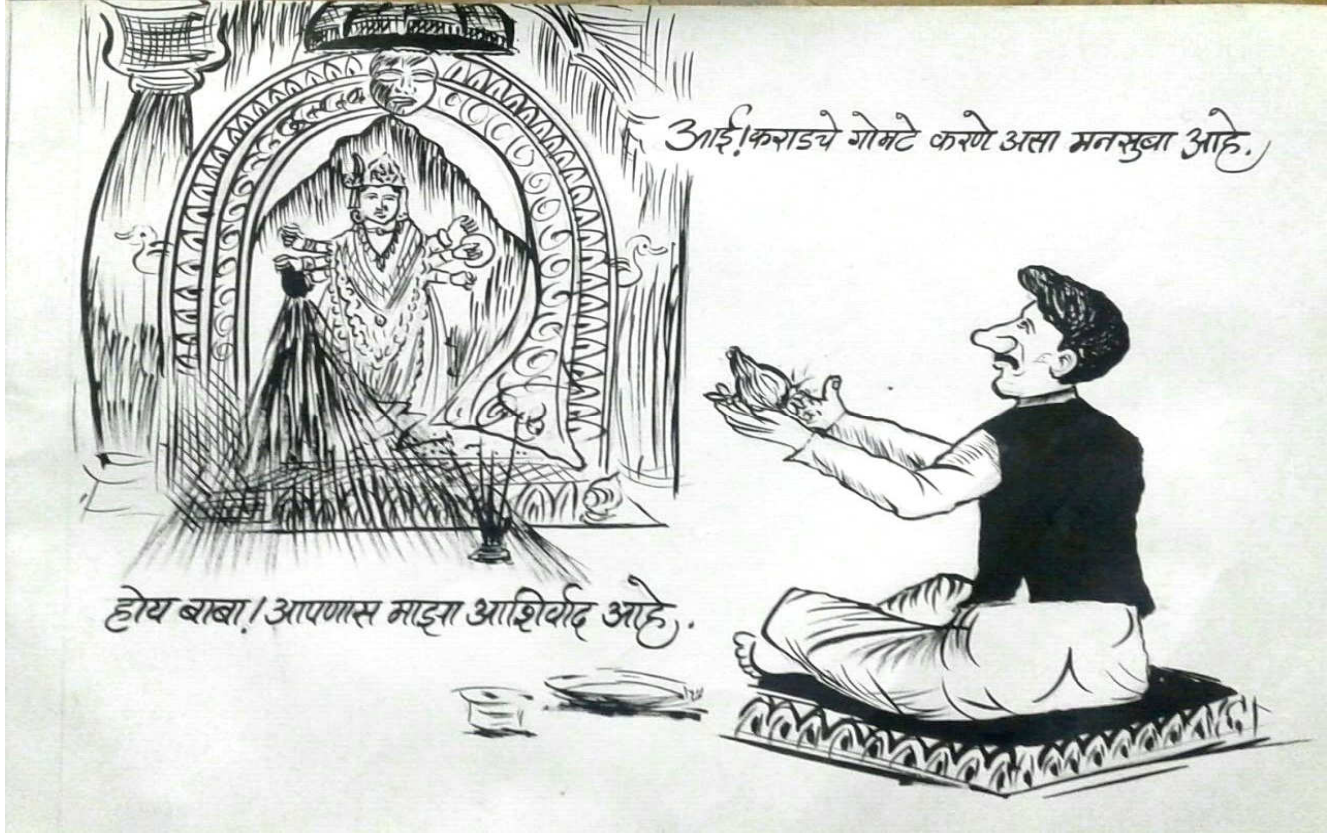 आई! कराडचे गोमटे करणे असा मनसुबा आहे.
होय बाबा! आपणास माझा आशिर्वाद आहे.